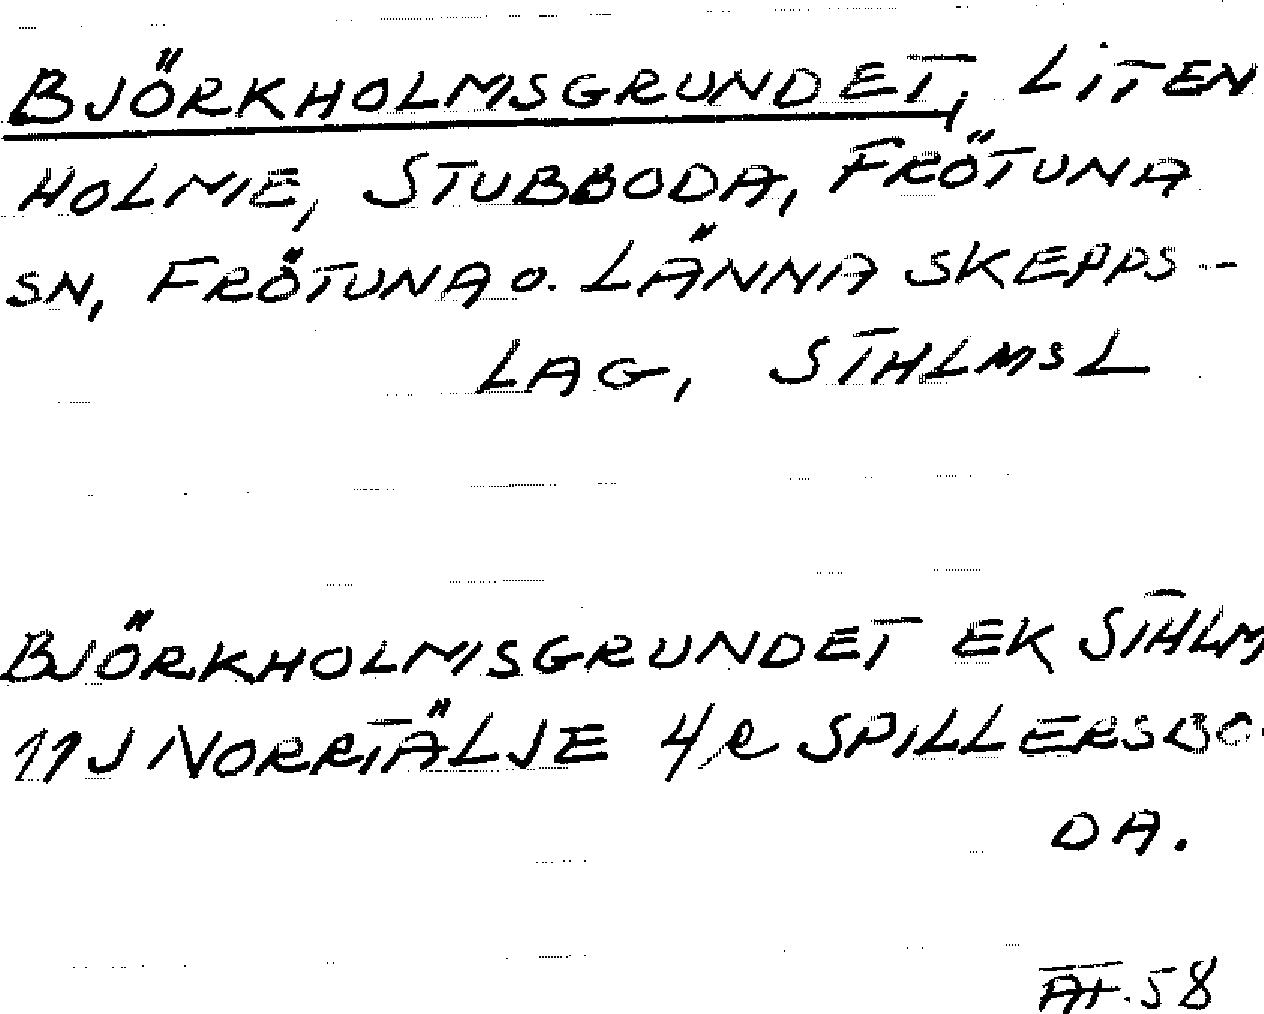 BJÖRKHOLMSGRUNDET, LITEN
HOLME, STUBBODA, FRÖTUNA
SN, FRÖTUNA O. LÄNNA SKEPPS-
LAG, STHLMSL
BJÖRKHOLMSGRUNDET EK STHLM
11J NORRTÄLJE 4e SPILLERSBO
DA.
AT.58